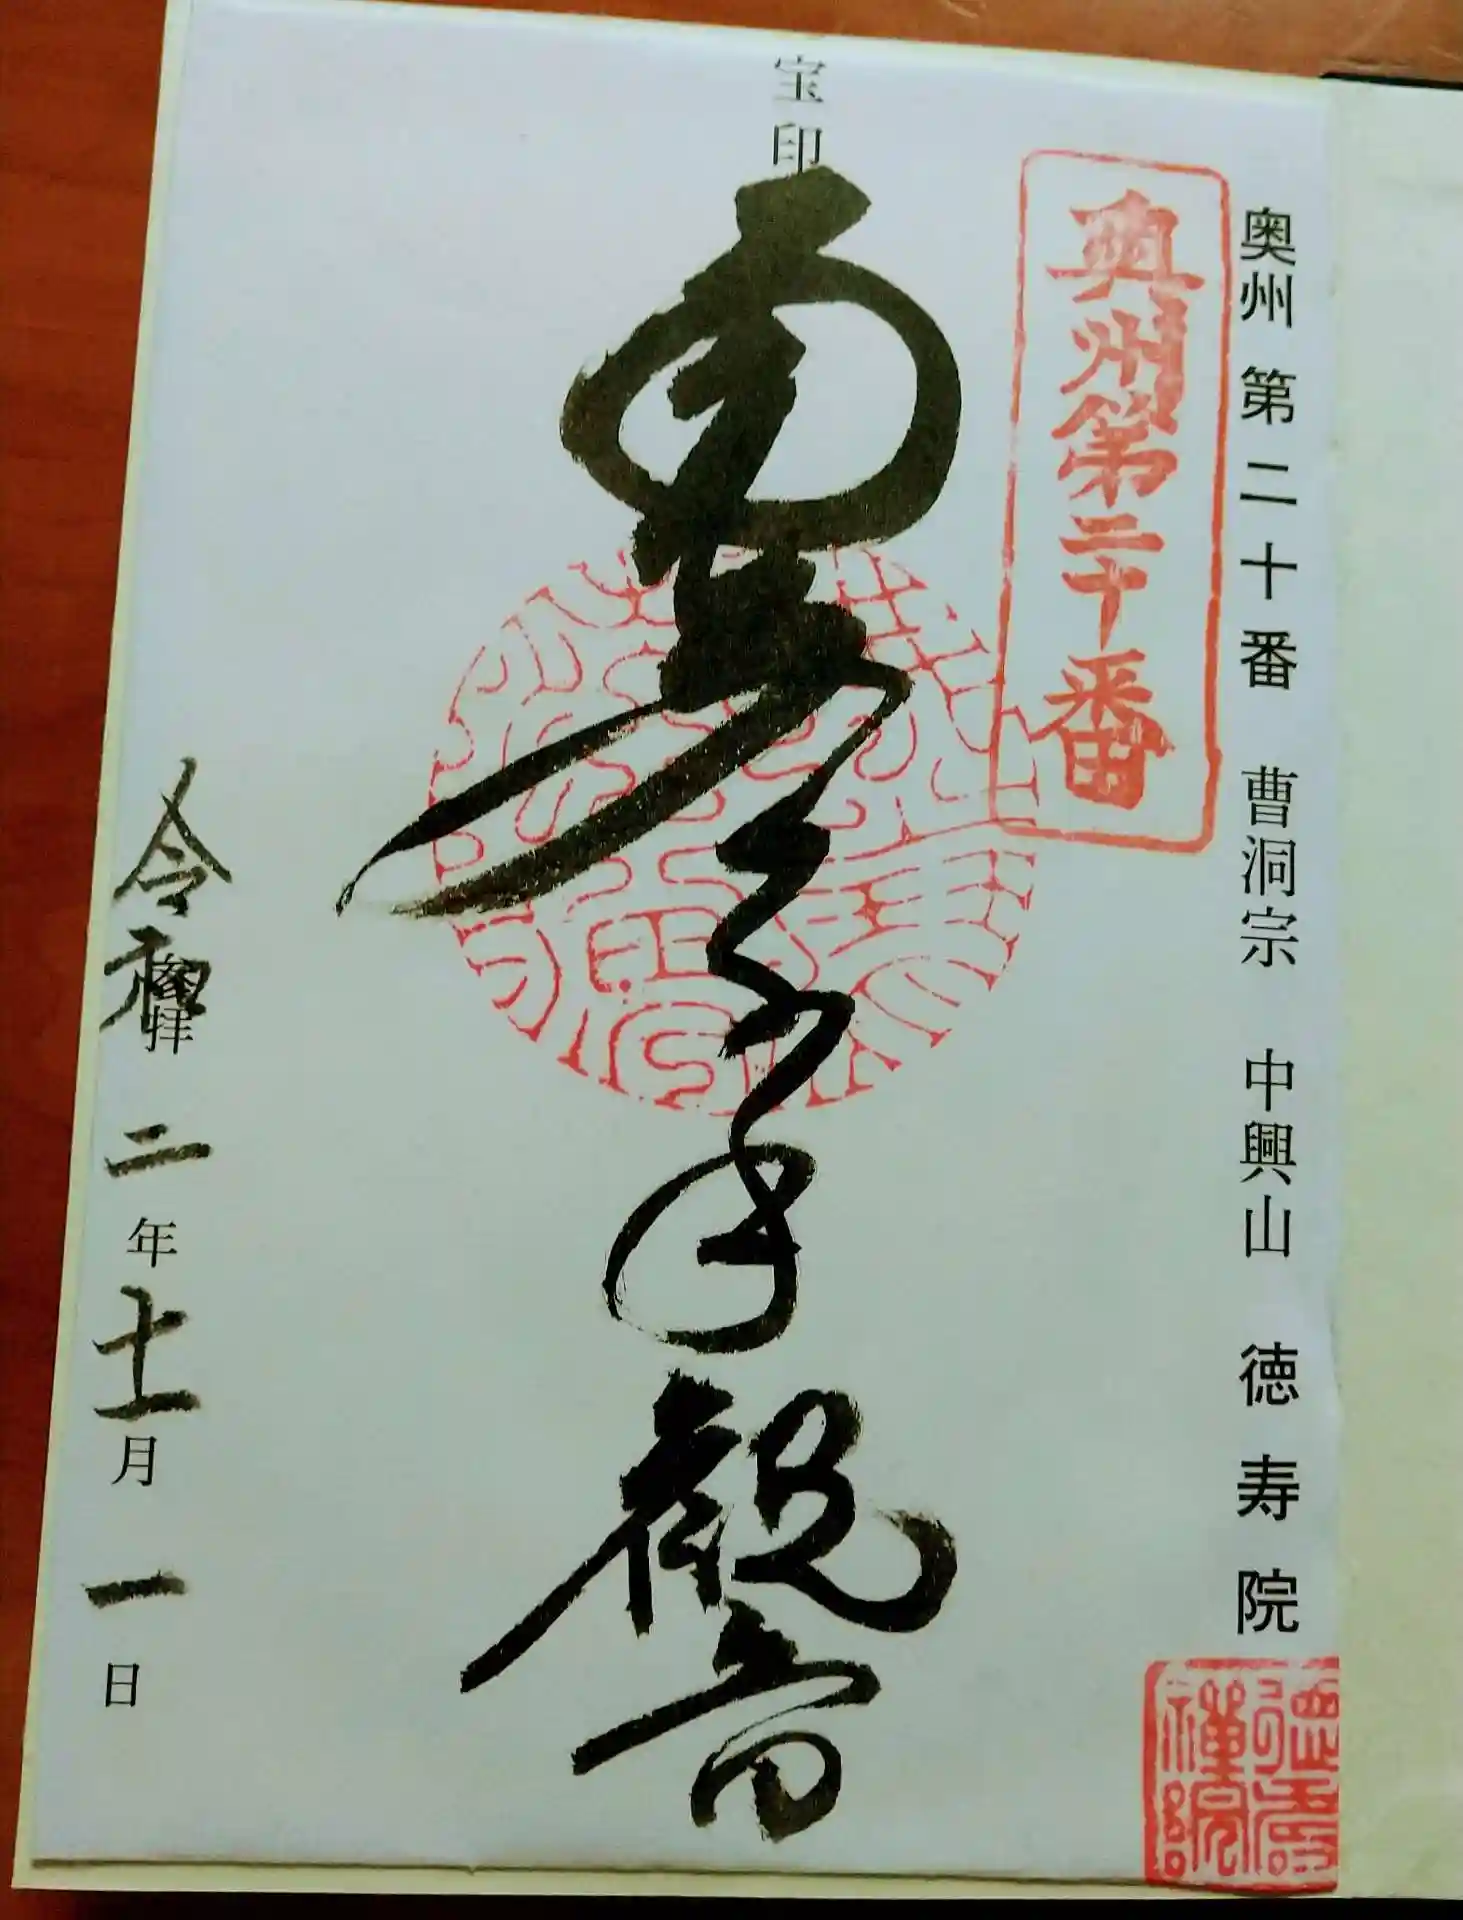 奥州 第二十番 曹洞宗 中興山 徳寿院
奥州第二十番
宝印
南無千手観音
参拝
令和二年十一月一日
徳壽禅院